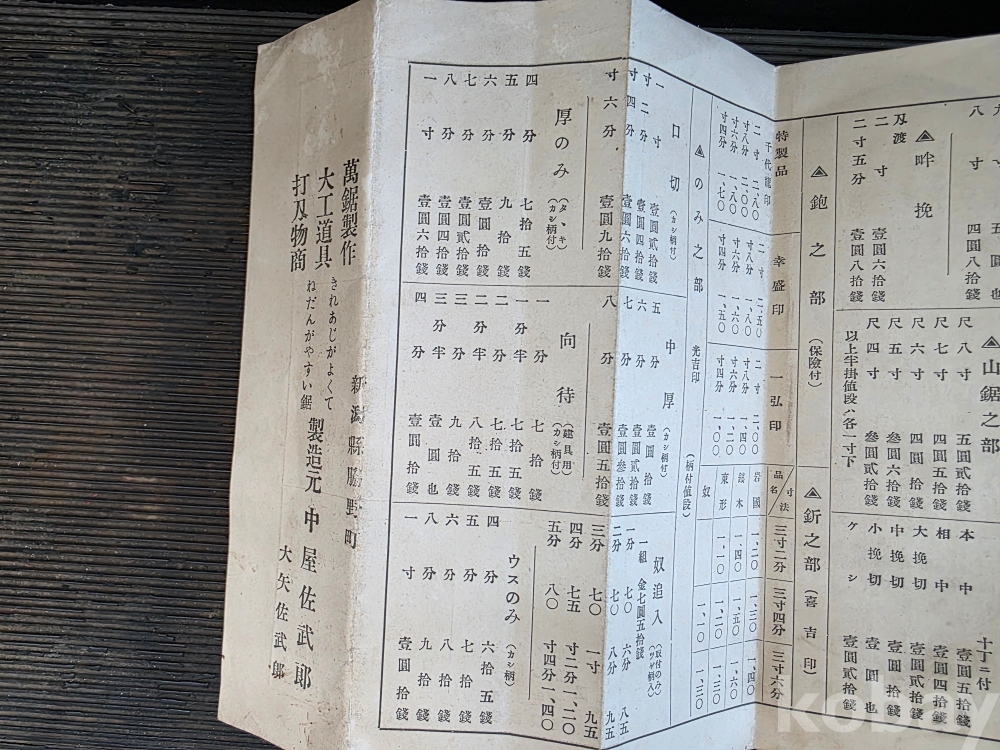 八寸 四圓八拾錢
▲畔挽
刄渡
二寸 壹圓六拾錢
二寸五分 壹圓八拾錢
▲山鋸之部
尺八寸 五圓貳拾錢
尺七寸 四圓五拾錢
尺六寸 四圓
尺五寸 參圓六拾錢
尺四寸 參圓貳拾錢
以上半掛値段ハ各一寸下
十丁ニ付
本中 壹圓五拾錢
相中 壹圓四拾錢
大挽切
中挽切
小挽切 壹圓也
ケシ 壹圓貳拾錢
▲鉋之部(保險付)
特製品
千代龍印
二寸 二、八〇
寸八分 二、〇〇
寸六分 一、八〇
寸四分 一、七〇
幸盛印
二寸 二、五〇
寸八分 一、八〇
寸六分 一、六〇
寸四分 一、五〇
一弘印
二寸 二、〇〇
寸八分 一、四〇
寸六分 一、二〇
寸四分 一、〇〇
▲釿之部(喜吉印)
品名/寸法 三寸二分 三寸四分 三寸六分
岩國 一、二〇 一、三〇 一、四〇
鐇木 一、四〇 一、五〇 一、六〇
東形 一、一〇 一、二〇 一、三〇
奴 一、一〇 一、三〇
▲のみ之部 光吉印(柄付値段)
口切(カシ柄付)
一寸 壹圓貳拾錢
寸二分 壹圓四拾錢
寸四分 壹圓六拾錢
寸六分 壹圓九拾錢
中厚(カシ柄付)
五分 壹圓拾錢
六分 壹圓貳拾錢
七分 壹圓參拾錢
八分 壹圓五拾錢
奴追入(取付のみ)(ツゲ柄入)
一組 金七圓五拾錢
一分 七〇 六分 八五
二分 七〇 八分 九五
三分 七〇 一寸 九五
四分 七五 寸二分 一、二〇
五分 八〇 寸四分 一、四〇
厚のみ(タヽキ)(カシ柄付)
四分 七拾五錢
五分 九拾錢
六分 壹圓拾錢
七分 壹圓貳拾錢
八分 壹圓四拾錢
一寸 壹圓六拾錢
向待(建具用)(カシ柄付)
一分 七拾錢
一分半 七拾五錢
二分 七拾五錢
二分半 八拾五錢
三分 九拾錢
三分半 壹圓也
四分 壹圓拾錢
ウスのみ(カシ柄)
四分 六拾五錢
五分 七拾錢
六分 八拾錢
八分 九拾錢
一寸 壹圓拾錢
萬鋸製作
大工道具
打刄物商
きれあじがよくて
ねだんがやすい鋸
新潟縣脇野町
製造元 中屋佐武郎
大矢佐武郎
kobay